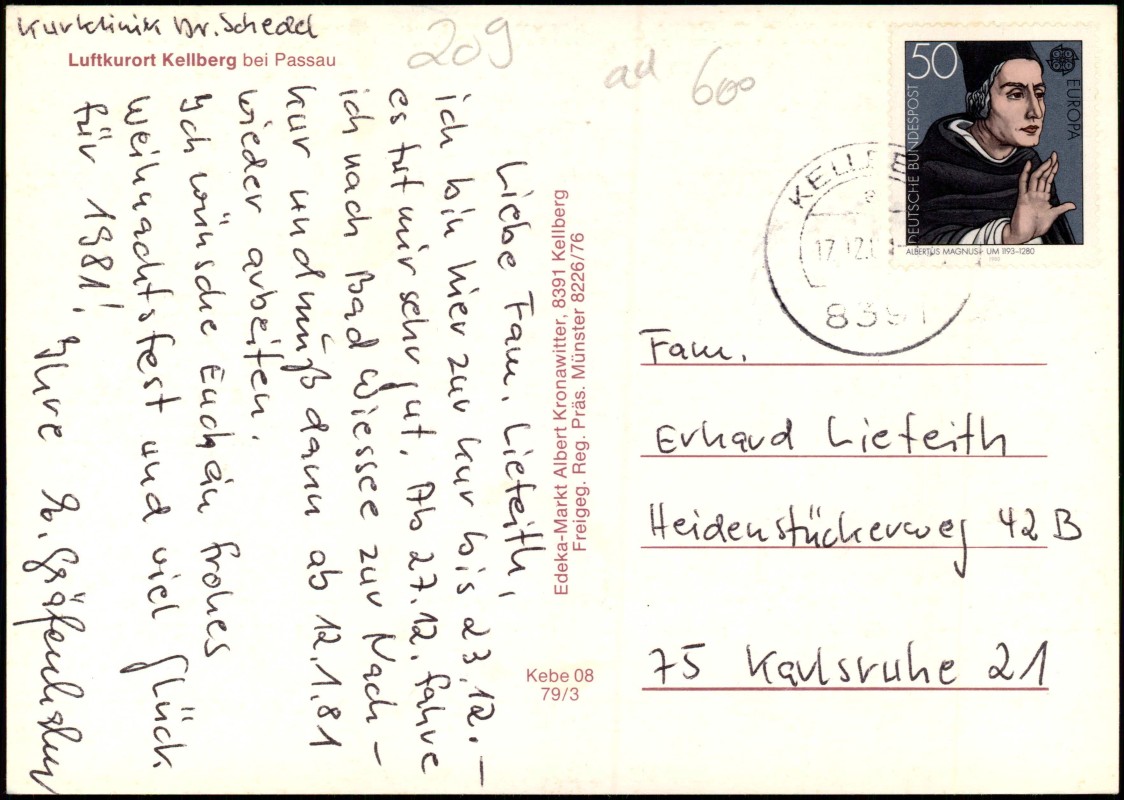 Kurklinik Dr. Schedel
Luftkurort Kellberg bei Passau
209
ad 600
Liebe Fam. Liefeith,
ich bin hier zur Kur bis 23.12. –
es tut mir sehr gut. Ab 27.12. fahre
ich nach Bad Wiessee zur Nach-
kur und muß dann ab 12.1.81
wieder arbeiten.
Ich wünsche Euch ein frohes
Weihnachtsfest und viel Glück
für 1981!
Ihre
Edeka-Markt Albert Kronawitter, 8391 Kellberg
Freigeg. Reg. Präs. Münster 8226/76
Kebe 08
79/3
50
EUROPA
DEUTSCHE BUNDESPOST
ALBERTUS MAGNUS UM 1193–1280
1980
17.12.
8391
Fam.
Erhard Liefeith
Heidenstückerweg 42 B
75 Karlsruhe 21